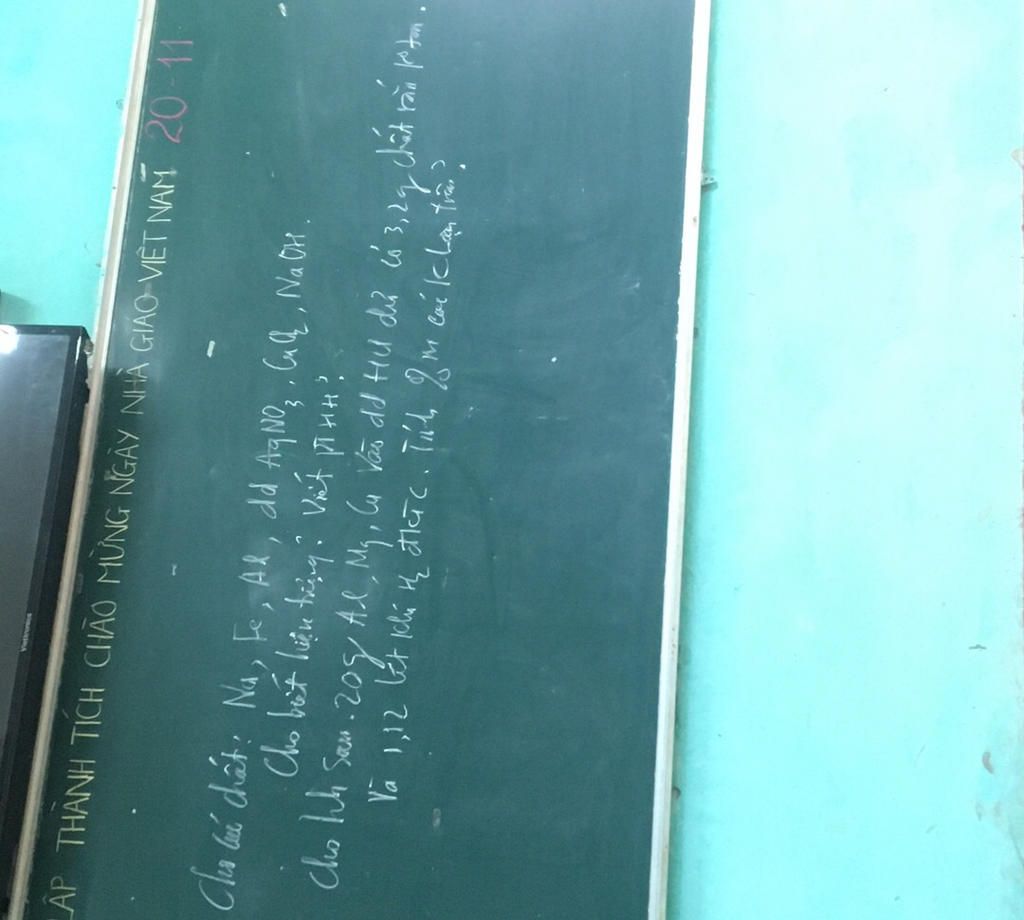 LẬP THÀNH TÍCH CHÀO MỪNG NGÀY NHÀ GIÁO VIỆT NAM 20-11
Cho các chất: Na, Fe, Al, dd AgNO3, CuCl2, NaOH.
Cho biết hiện tượng? Viết PTHH?
Cho hh sau. 20g Al, Mg, Cu vào dd HCl dư có 3,2g chất rắn ko tan.
Và 1,12 lít khí H2 đktc. Tính % m các k/loại trên?